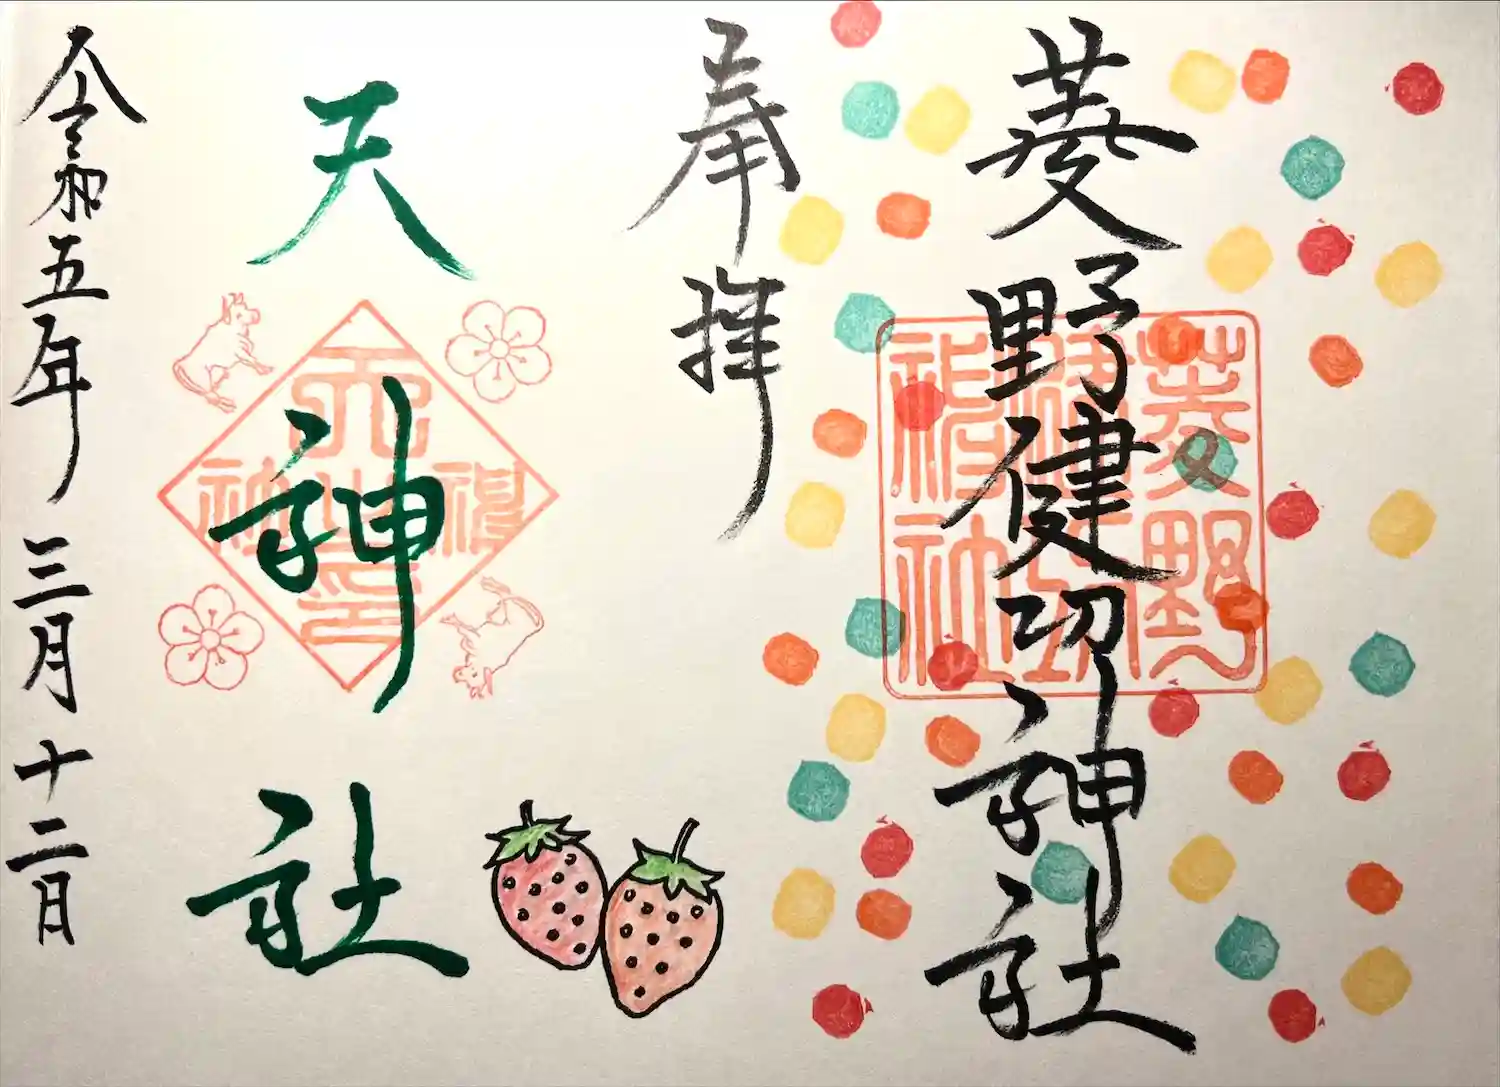 菱野健功神社
菱野
健功
神社
奉拝
天神社
天神社之印
令和五年三月十二日